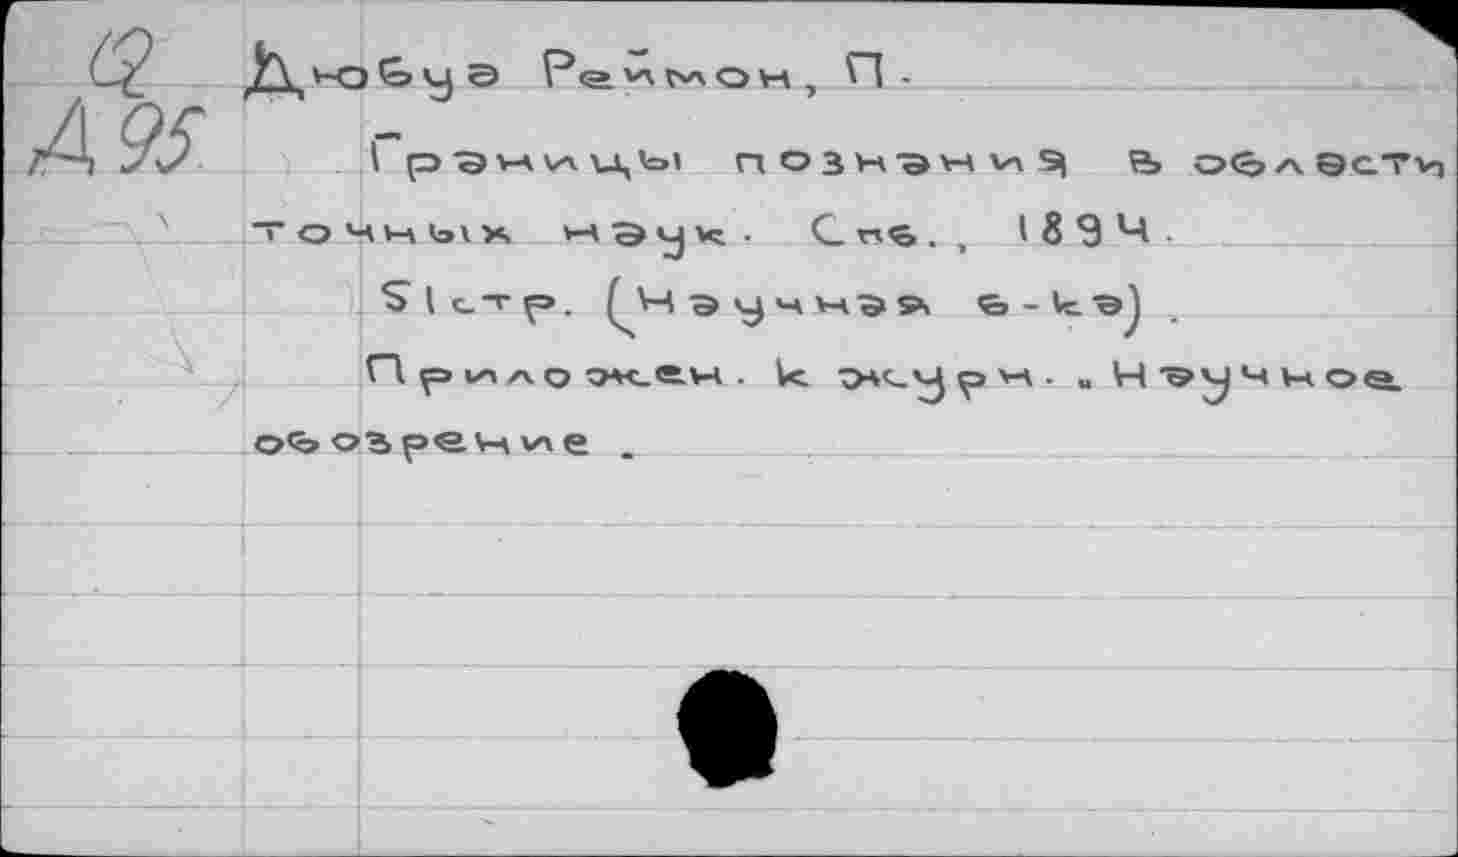 Q
Д95
Дюбуа Реймон, П.
Границы познания в области
точных наук. Спб., 1894.
51 стр. (Научная б-ка).
Приложен. к журн. „Научное
обозрение".